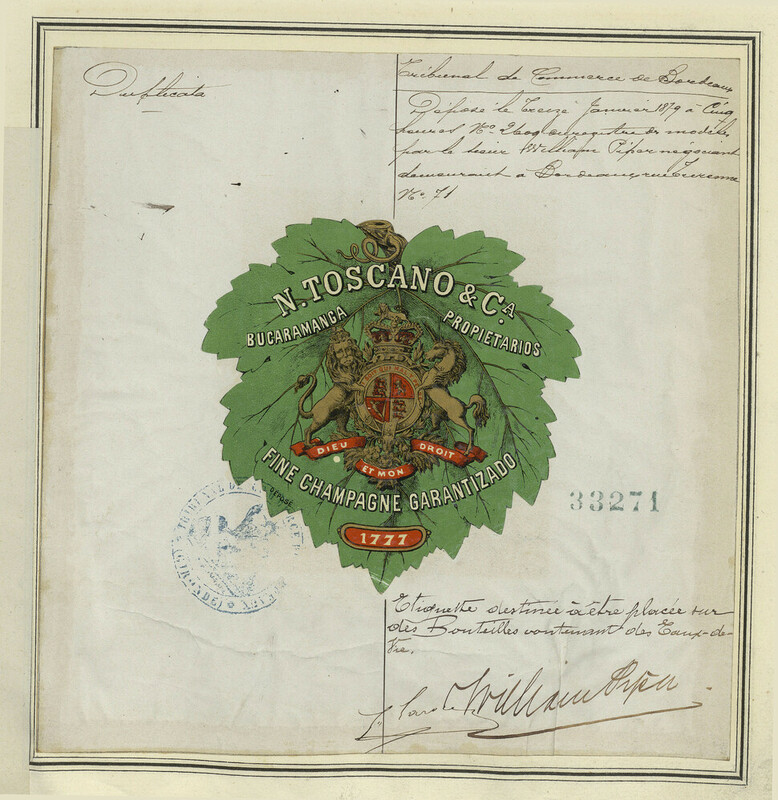 Duplicata
Tribunal de Commerce de Bordeaux
Déposé le treize Janvier 1879 à Cinq
heures No. 2609 du registre de modèles
par le sieur William Piper négociant
demeurant à Bordeaux, rue Turenne
No. 71
N. TOSCANO & CA
BUCARAMANGA PROPIETARIOS
DIEU ET MON DROIT
FINE CHAMPAGNE GARANTIZADO
DÉPOSÉ
1777
33271
TRIBUNAL DE COMMERCE
(GIRONDE)
Etiquette destinée à être placée sur
des Bouteilles contenant des Eaux-de-
Vie.
William Piper